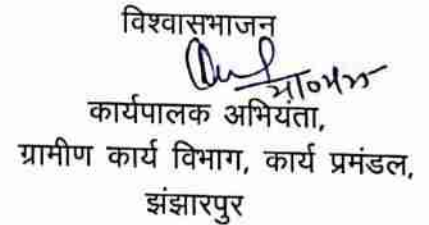 विश्वासभाजन
कार्यपालक अभियंता,
ग्रामीण कार्य विभाग, कार्य प्रमंडल,
झंझारपुर